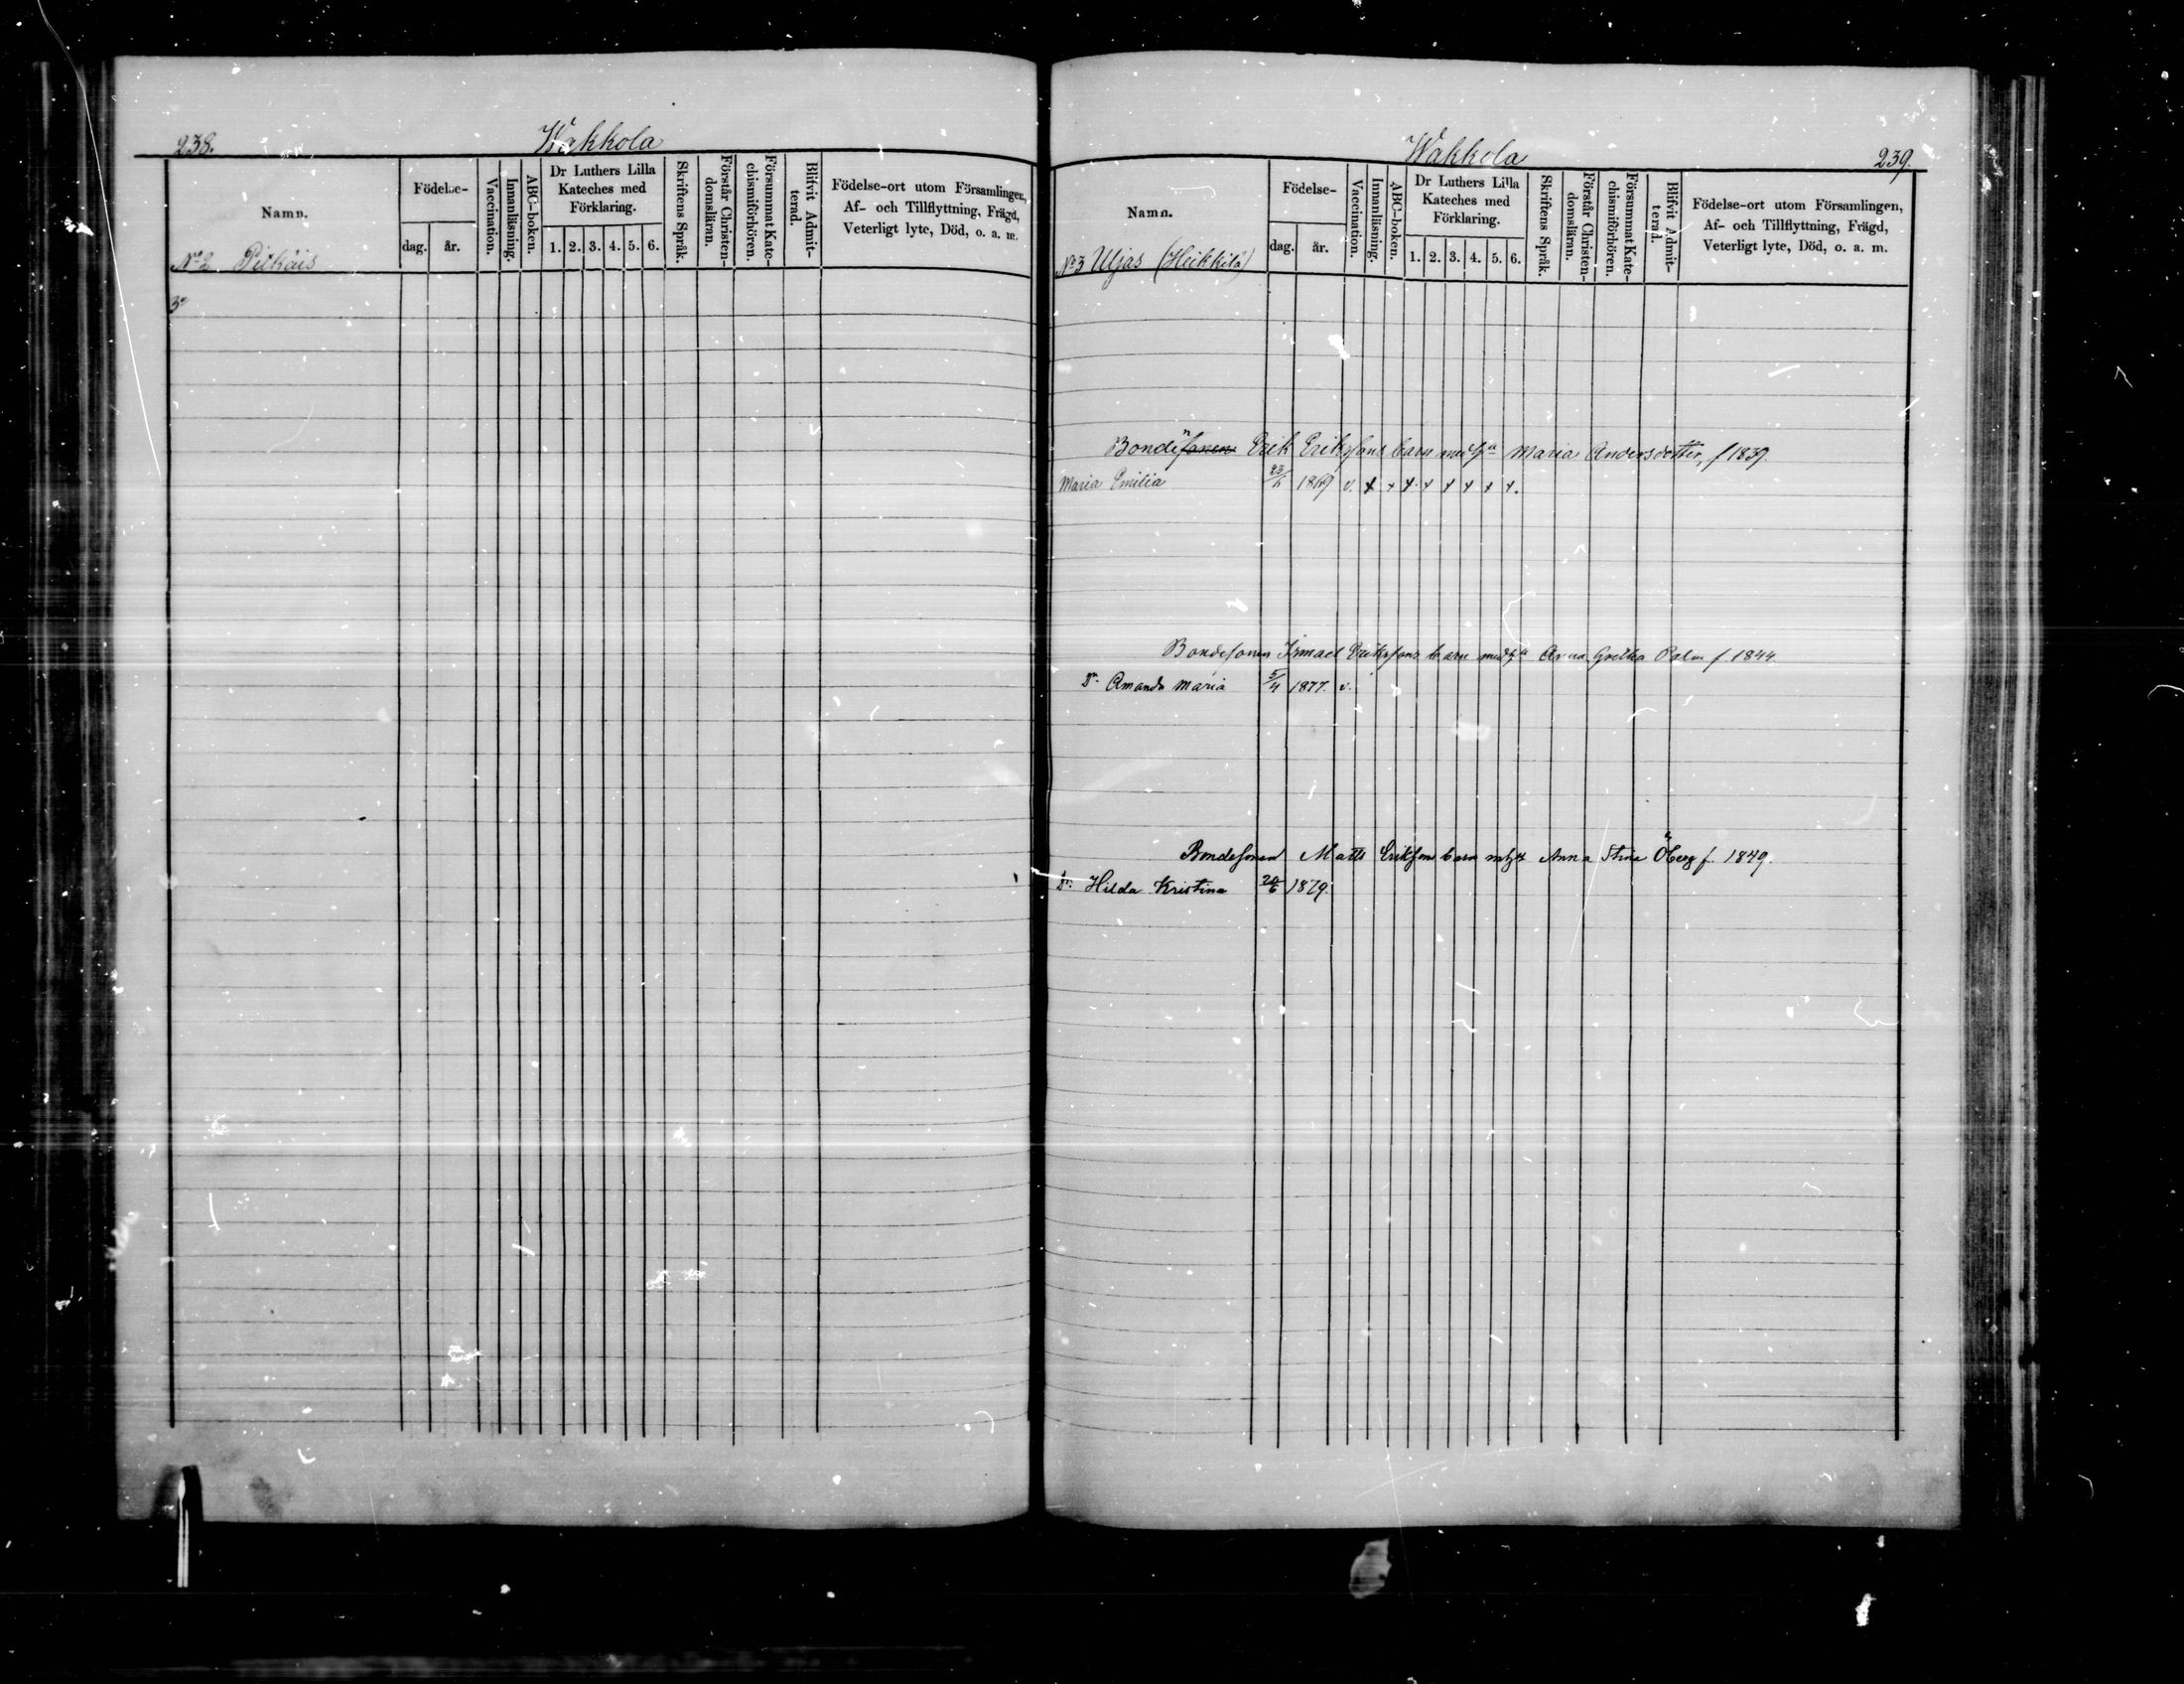 238.
Wakkola
Namn.
Födelse-
dag.
år.
Vaccination.
Innanläsning.
ABC-boken.
Dr Luthers Lilla
Kateches med
Förklaring.
1. 2. 3. 4. 5. 6.
Skriftens Språk.
Förstår Christen-
domsläran.
Försummat Kate-
chismiförhören.
Blifvit Admit-
terad.
Födelse-ort utom Församlingen,
Af- och Tillflyttning, Frägd,
Veterligt lyte, Död, o. a. m.
No 2 Pitkäis
Wakkola
239.
Namn.
Födelse-
dag.
år.
Vaccination.
Innanläsning.
ABC-boken.
Dr Luthers Lilla
Kateches med
Förklaring.
1. 2. 3. 4. 5. 6.
Skriftens Språk.
Förstår Christen-
domsläran.
Försummat Kate-
chismiförhören.
Blifvit Admit-
terad.
Födelse-ort utom Församlingen,
Af- och Tillflyttning, Frägd,
Veterligt lyte, Död, o. a. m.
No 3 Uljas (Heikkilä)
Bonden Erik Erikssons barn med Maria Andersdotter, f 1839.
Maria Emilia 1869 v. x x x x x x x x.
Bondesonen Ismael Erikssons barn med Anna Gretha Palm f. 1844.
Dr. Amanda Maria 5/4 1877. v.
Bondesonen Matts Eriksons barn Anna Stina Öberg f. 1849.
Dr. Hilda Kristina 20/6 1879.